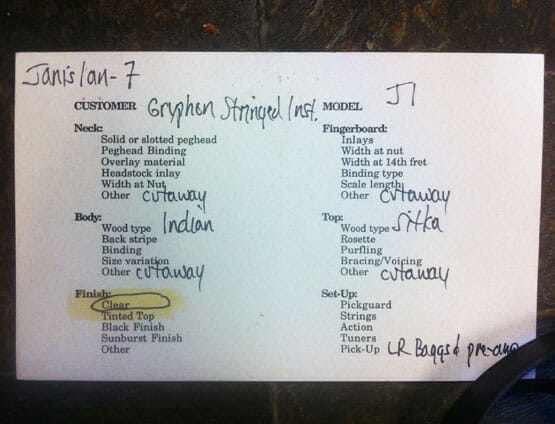 Janis Ian - 7
CUSTOMER Gryphon Stringed Inst. MODEL JI
Neck:
Solid or slotted peghead
Peghead Binding
Overlay material
Headstock inlay
Width at Nut
Other cutaway
Fingerboard:
Inlays
Width at nut
Width at 14th fret
Binding type
Scale length
Other cutaway
Body:
Wood type Indian
Back stripe
Binding
Size variation
Other cutaway
Top:
Wood type Sitka
Rosette
Purfling
Bracing/Voicing
Other cutaway
Finish:
Clear
Tinted Top
Black Finish
Sunburst Finish
Other
Set-Up:
Pickguard
Strings
Action
Tuners
Pick-Up LR Baggs & pre-amp